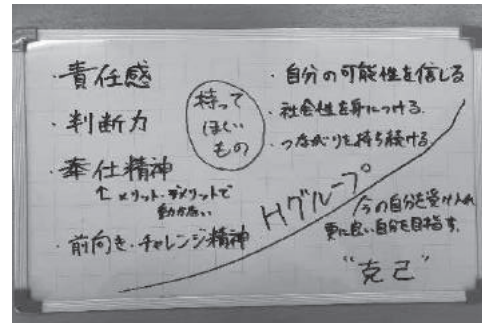 ・責任感
・判断力
・奉仕精神
↑メリット・デメリットで
動かない
・前向き・チャレンジ精神
持って
ほしい
もの
・自分の可能性を信じる
・社会性を身につける
・つながりを持ち続ける
Hグループ
今の自分を受け入れ
更に良い自分を目指す。
"克己"